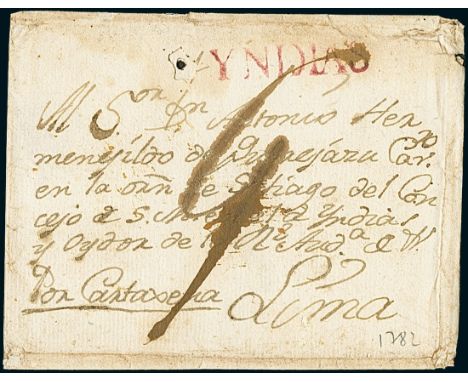 YNDIAS
Al S.or Dn Antonio Her
menejildo de Querejazu Cavro
en la orn de Sntiago del Con
cejo de S. M. en el de Yndias
y Oydor de la Rl Auda de
Por Cartaxena Lima
1782